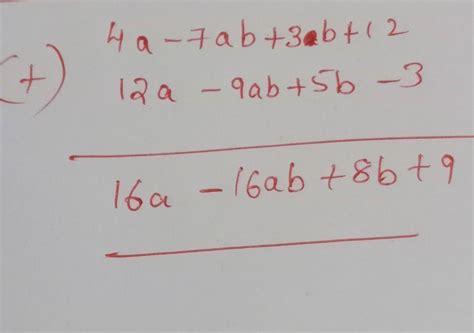 4a - 7ab + 3b + 12
(+) 12a - 9ab + 5b - 3
16a - 16ab + 8b + 9